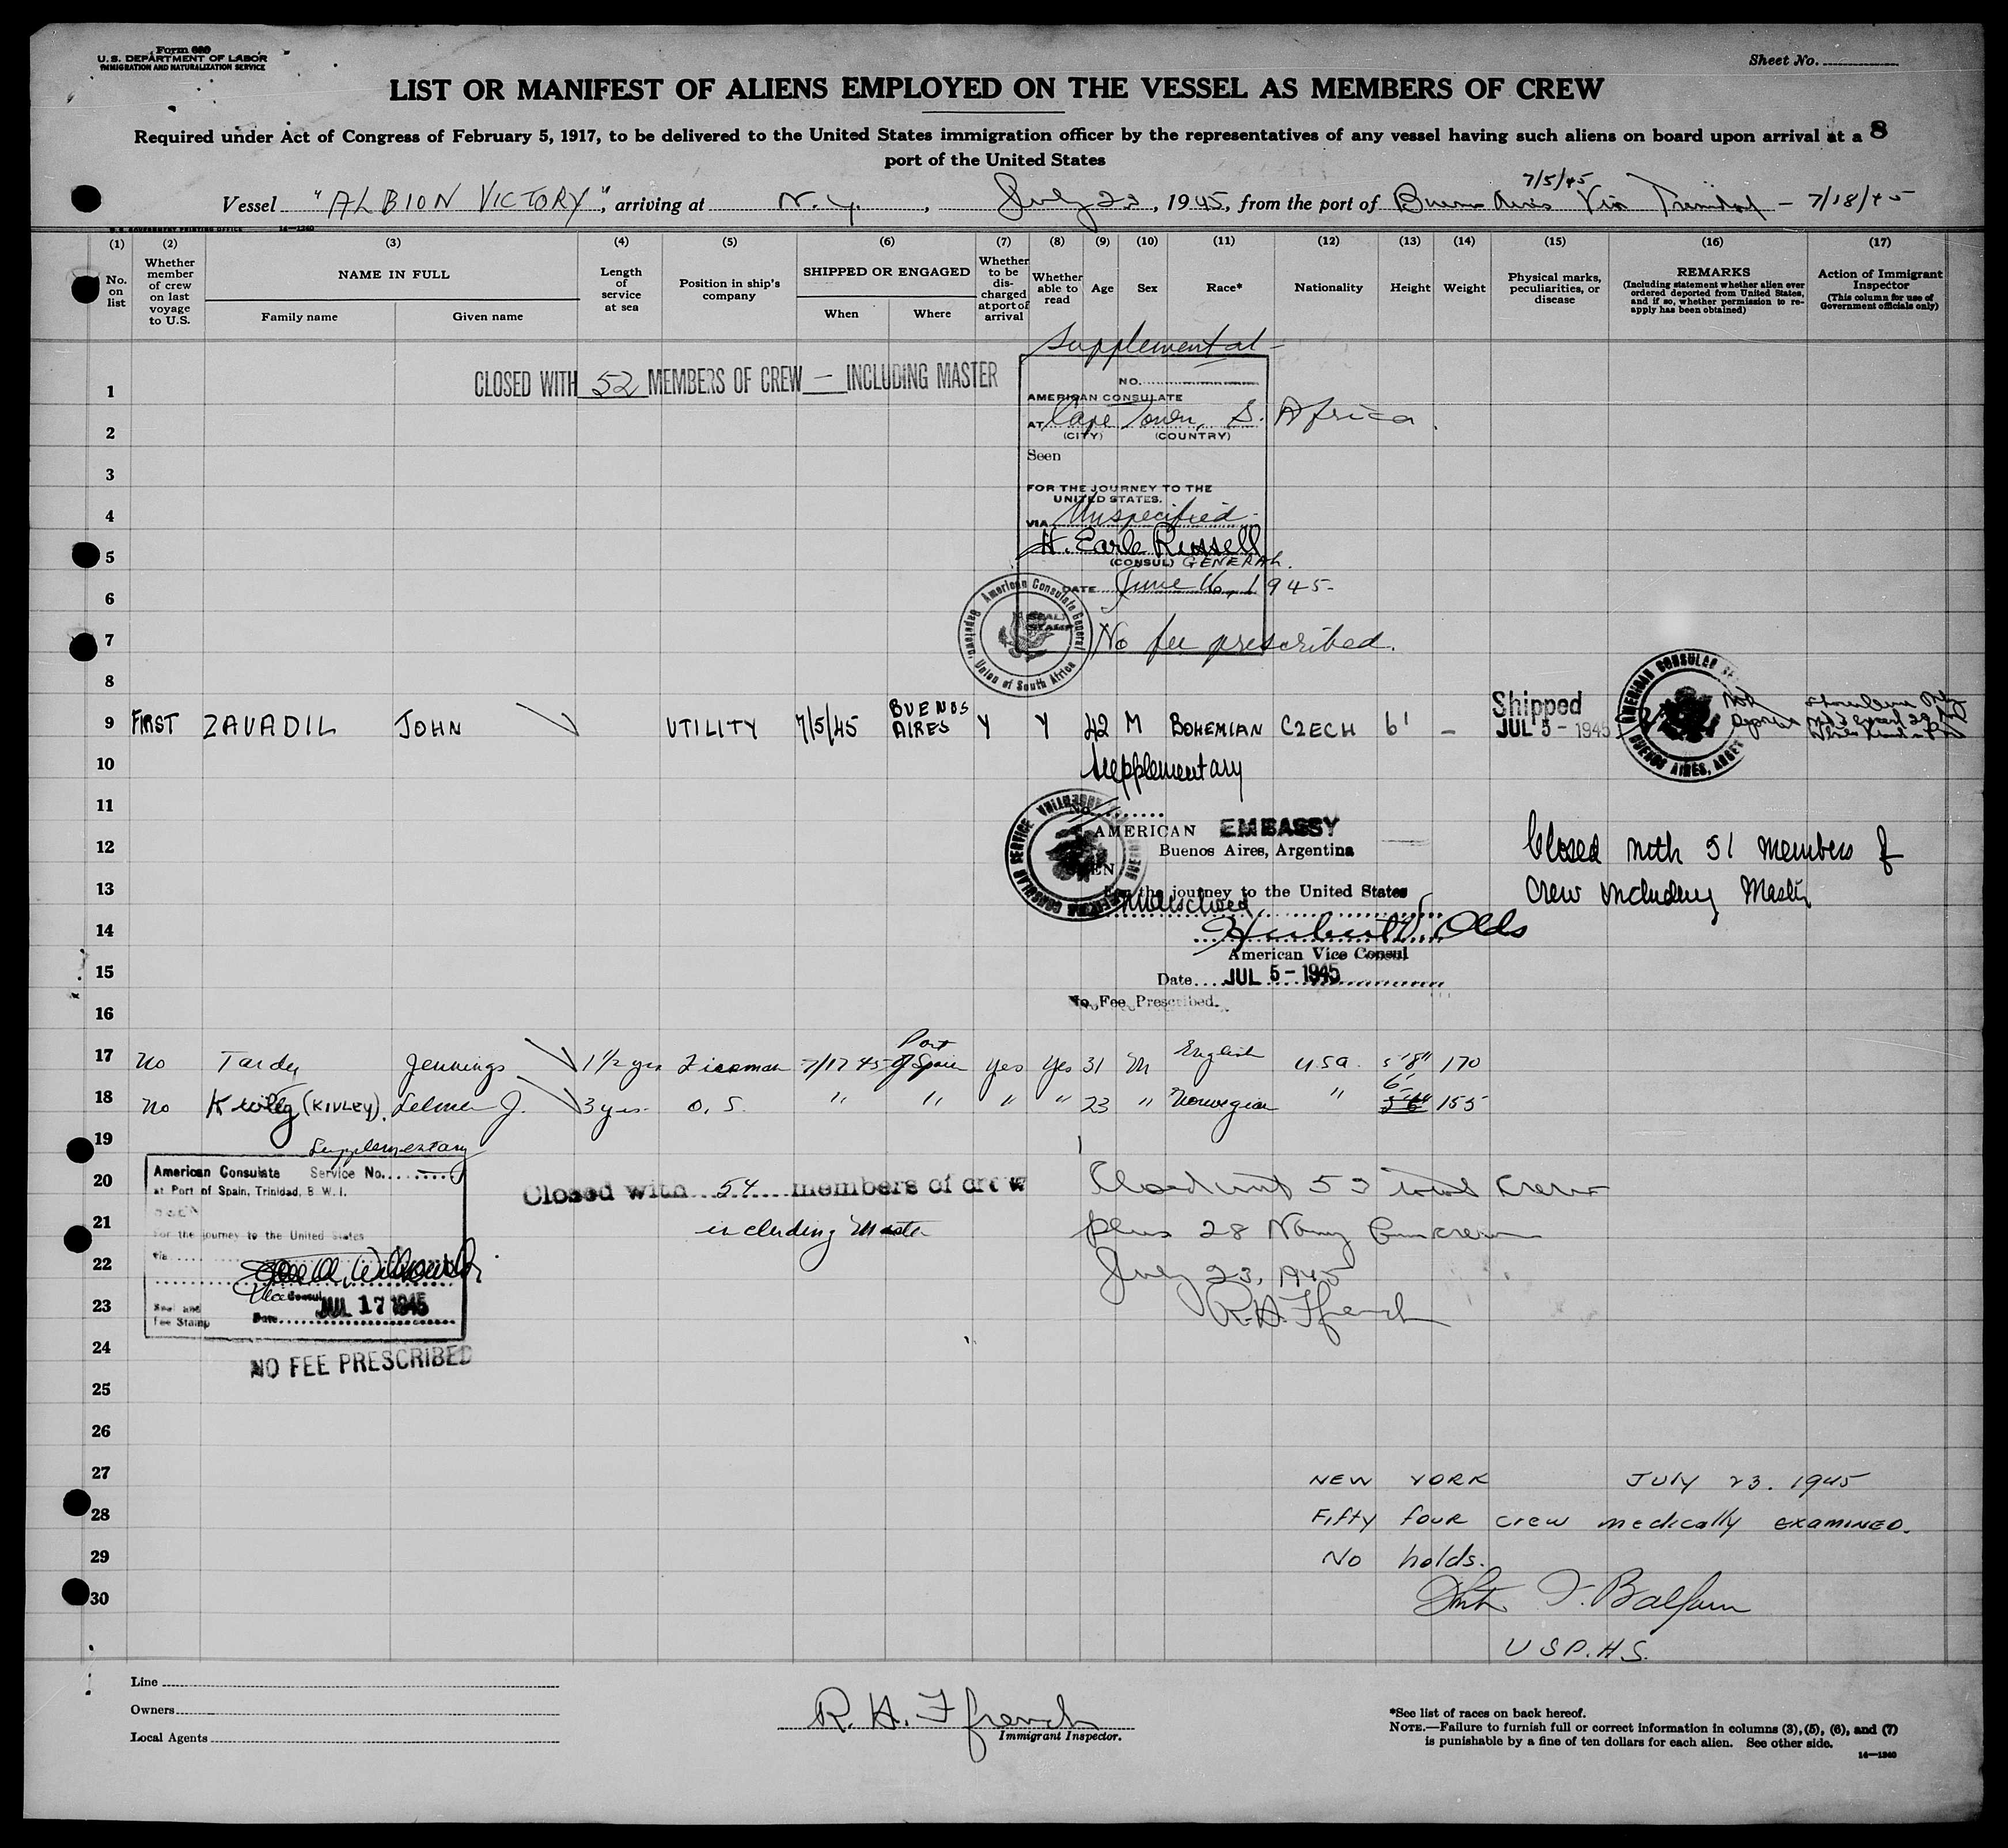 Form 680
U. S. DEPARTMENT OF LABOR
IMMIGRATION AND NATURALIZATION SERVICE
Sheet No.
LIST OR MANIFEST OF ALIENS EMPLOYED ON THE VESSEL AS MEMBERS OF CREW
Required under Act of Congress of February 5, 1917, to be delivered to the United States immigration officer by the representatives of any vessel having such aliens on board upon arrival at a 8
port of the United States
7/5/45
Vessel "ALBION VICTORY", arriving at N.Y., July 23, 1945, from the port of Buenos Aires Via Trinidad - 7/18/45
U. S. GOVERNMENT PRINTING OFFICE 14—1240
(1) (2) (3) (4) (5) (6) (7) (8) (9) (10) (11) (12) (13) (14) (15) (16) (17)
No. on list
Whether member of crew on last voyage to U.S.
NAME IN FULL
Family name Given name
Length of service at sea
Position in ship's company
SHIPPED OR ENGAGED
When Where
Whether to be discharged at port of arrival
Whether able to read
Age
Sex
Race*
Nationality
Height
Weight
Physical marks, peculiarities, or disease
REMARKS
(Including statement whether alien ever ordered deported from United States, and if so, whether permission to reapply has been obtained)
Action of Immigrant Inspector
(This column for use of Government officials only)
Supplemental
1 CLOSED WITH 52 MEMBERS OF CREW — INCLUDING MASTER
NO.
AMERICAN CONSULATE
2 AT Cape Town, S. Africa.
(CITY) (COUNTRY)
3 Seen
FOR THE JOURNEY TO THE
UNITED STATES.
4 VIA Unspecified
H. Earle Russell
5 (CONSUL) GENERAL.
6 DATE June 16, 1945
American Consulate General
Capetown, Union of South Africa
7 No fee prescribed.
8
9 FIRST ZAVADIL JOHN UTILITY 7/5/45 BUENOS AIRES Y Y 42 M BOHEMIAN CZECH 6' - Shipped JUL 5 - 1945
AMERICAN CONSULAR
BUENOS AIRES,
10 Supplementary
11
No.
AMERICAN EMBASSY
12 Buenos Aires, Argentina
Closed with 51 members of
13 For the journey to the United States
Crew including Master
AMERICAN CONSULAR SERVICE
14 Olds
American Vice Consul
15 Date JUL 5 - 1945
No Fee Prescribed.
16
17 No Tardy Jennings 1 1/2 yrs Fireman 7/17 45 Port of Spain Yes Yes 31 M English USA. 5'8" 170
18 No (KIVLEY) Selmer J. 3 yrs. O. S. " " " " 23 " Norwegian " 6' 155
19
Supplementary
American Consulate Service No.
at Port of Spain, Trinidad, B. W. I.
20 Closed with 54 members of crew
Closed with 53 total crew
21 including Master
plus 28 Navy Guncrew
For the journey to the United States
Via
22 July 23, 1945
Vice Consul
23 R.H. Ffrench
Seal and
Fee Stamp
Date JUL 17 1945
24 NO FEE PRESCRIBED
25
26
27 NEW YORK JULY 23. 1945
28 Fifty four crew medically examined.
29 No holds.
30 F. Balfour
U S P. H. S.
Line
Owners
Local Agents
R. H. Ffrench
Immigrant Inspector.
*See list of races on back hereof.
NOTE.—Failure to furnish full or correct information in columns (3), (5), (6), and (7)
is punishable by a fine of ten dollars for each alien. See other side.
14—1240